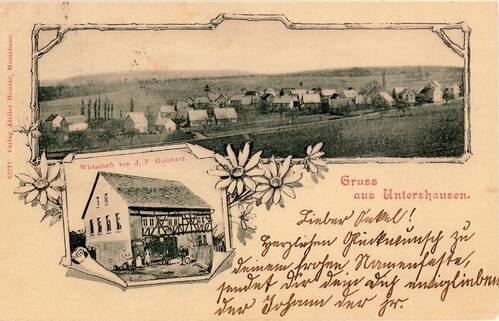 52217 Verlag Atelier Meister, Montabaur.
Wirtschaft von J. P. Gombert.
Gruss
aus Untershausen.
Lieber Onkel!
Herzlichen Glückwunsch zu
deinem frohen Namenfeste,
sendet Dir dein auf
der Johann der